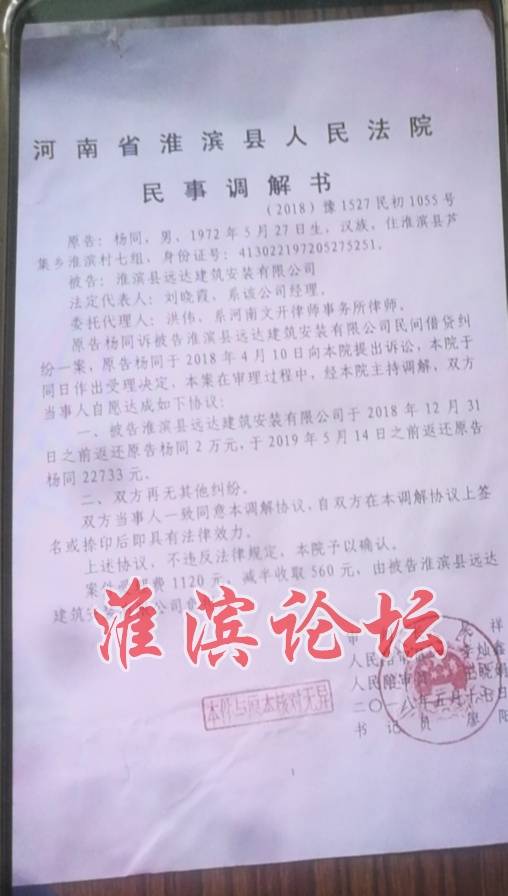 河南省淮滨县人民法院
民事调解书
（2018）豫1527民初1055号
原告：杨同，男，1972年5月27日生，汉族，住淮滨县芦
集乡淮滨村七组，身份证号：413022197205275251。
被告：淮滨县远达建筑安装有限公司
法定代表人：刘晓霞，系该公司经理。
委托代理人：洪伟，系河南文开律师事务所律师。
原告杨同诉被告淮滨县远达建筑安装有限公司民间借贷纠
纷一案，原告杨同于2018年4月10日向本院提出诉讼，本院于
同日作出受理决定，本案在审理过程中，经本院主持调解，双方
当事人自愿达成如下协议：
一、被告淮滨县远达建筑安装有限公司于2018年12月31
日之前返还原告杨同2万元，于2019年5月14日之前返还原告
杨同22733元。
二、双方再无其他纠纷。
双方当事人一致同意本调解协议，自双方在本调解协议上签
名或捺印后即具有法律效力。
上述协议，不违反法律规定，本院予以确认。
案件 费1120元，减半收取560元，由被告淮滨县远达
建筑安 公司
淮滨论坛
审 样
人民陪审 李灿鑫
人民陪审 晓娟
二〇一八年五月十七日
书记员
本件与原本核对无异
1